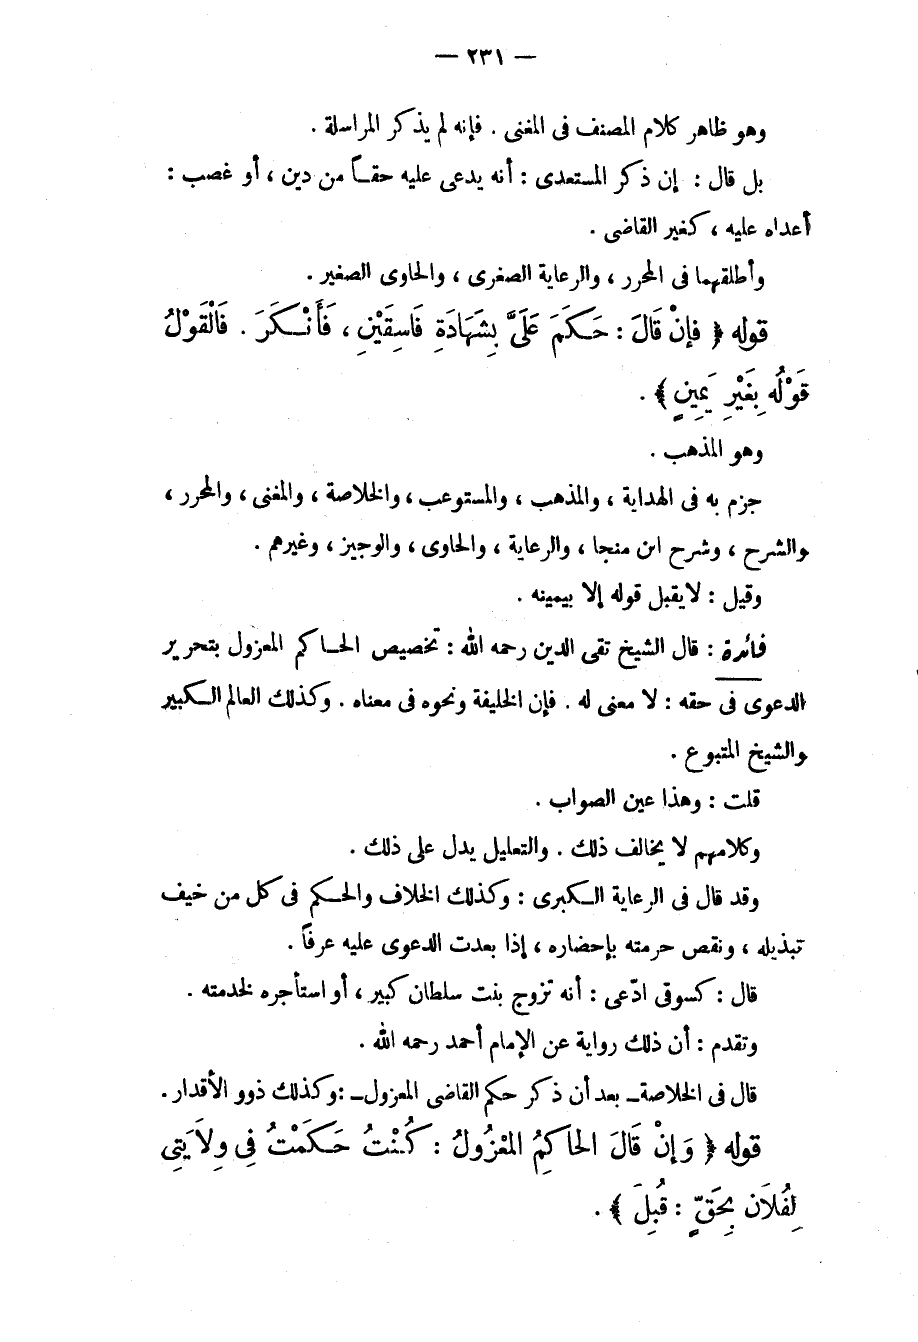 — ٢٣١ —
وهو ظاهر كلام المصنف فى المغنى . فإنه لم يذكر المراسلة .
بل قال : إن ذكر المستعدى : أنه يدعى عليه حقــاً من دين ، أو غصب :
أعداه عليه ، كغير القاضى .
وأطلقهما فى المحرر ، والرعاية الصغرى ، والحاوى الصغير .
قوله ﴿ فإنْ قَالَ : حَـكَمَ عَلَىَّ بِشَهَادَةِ فَاسِقَيْنِ ، فَأَنْـكَرَ . فَالْقَوْلُ
قَوْلُه بِغَيْرِ يَمِينٍ ﴾ .
وهو المذهب .
جزم به فى الهداية ، والمذهب ، والمستوعب ، والخلاصة ، والمغنى ، والمحرر ،
والشرح ، وشرح ابن منجا ، والرعاية ، والحاوى ، والوجيز ، وغيرهم .
وقيل : لايقبل قوله إلا بيمينه .
فائدة : قال الشيخ تقى الدين رحمه الله : تخصيص الحـاكم المعزول بتحرير
الدعوى فى حقه : لا معنى له . فإن الخليفة ونحوه فى معناه . وكذلك العالم الـكبير
والشيخ المتبوع .
قلت : وهذا عين الصواب .
وكلامهم لا يخالف ذلك . والتعليل يدل على ذلك .
وقد قال فى الرعاية الـكبرى : وكذلك الخلاف والحـكم فى كل من خيف
تبذيله ، ونقص حرمته بإحضاره ، إذا بعدت الدعوى عليه عرفاً .
قال : كسوقى ادّعى : أنه تزوج بنت سلطان كبير ، أو استأجره لخدمته .
وتقدم : أن ذلك رواية عن الإمام أحمد رحمه الله .
قال فى الخلاصة ـ بعد أن ذكر حكم القاضى المعزول ـ : وكذلك ذوو الأقدار .
قوله ﴿ وَإِنْ قَالَ الحاكِمُ المعْزُولُ : كُـنْتُ حَـكَمْتُ فِى وِلاَيَتِى
لِفُلاَن بِحَقٍّ : قُبِلَ ﴾ .